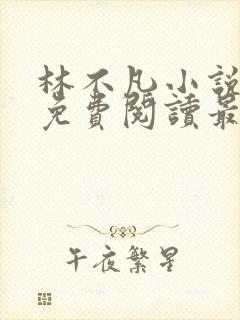 林不凡小說
免費閱讀最
午夜繁星